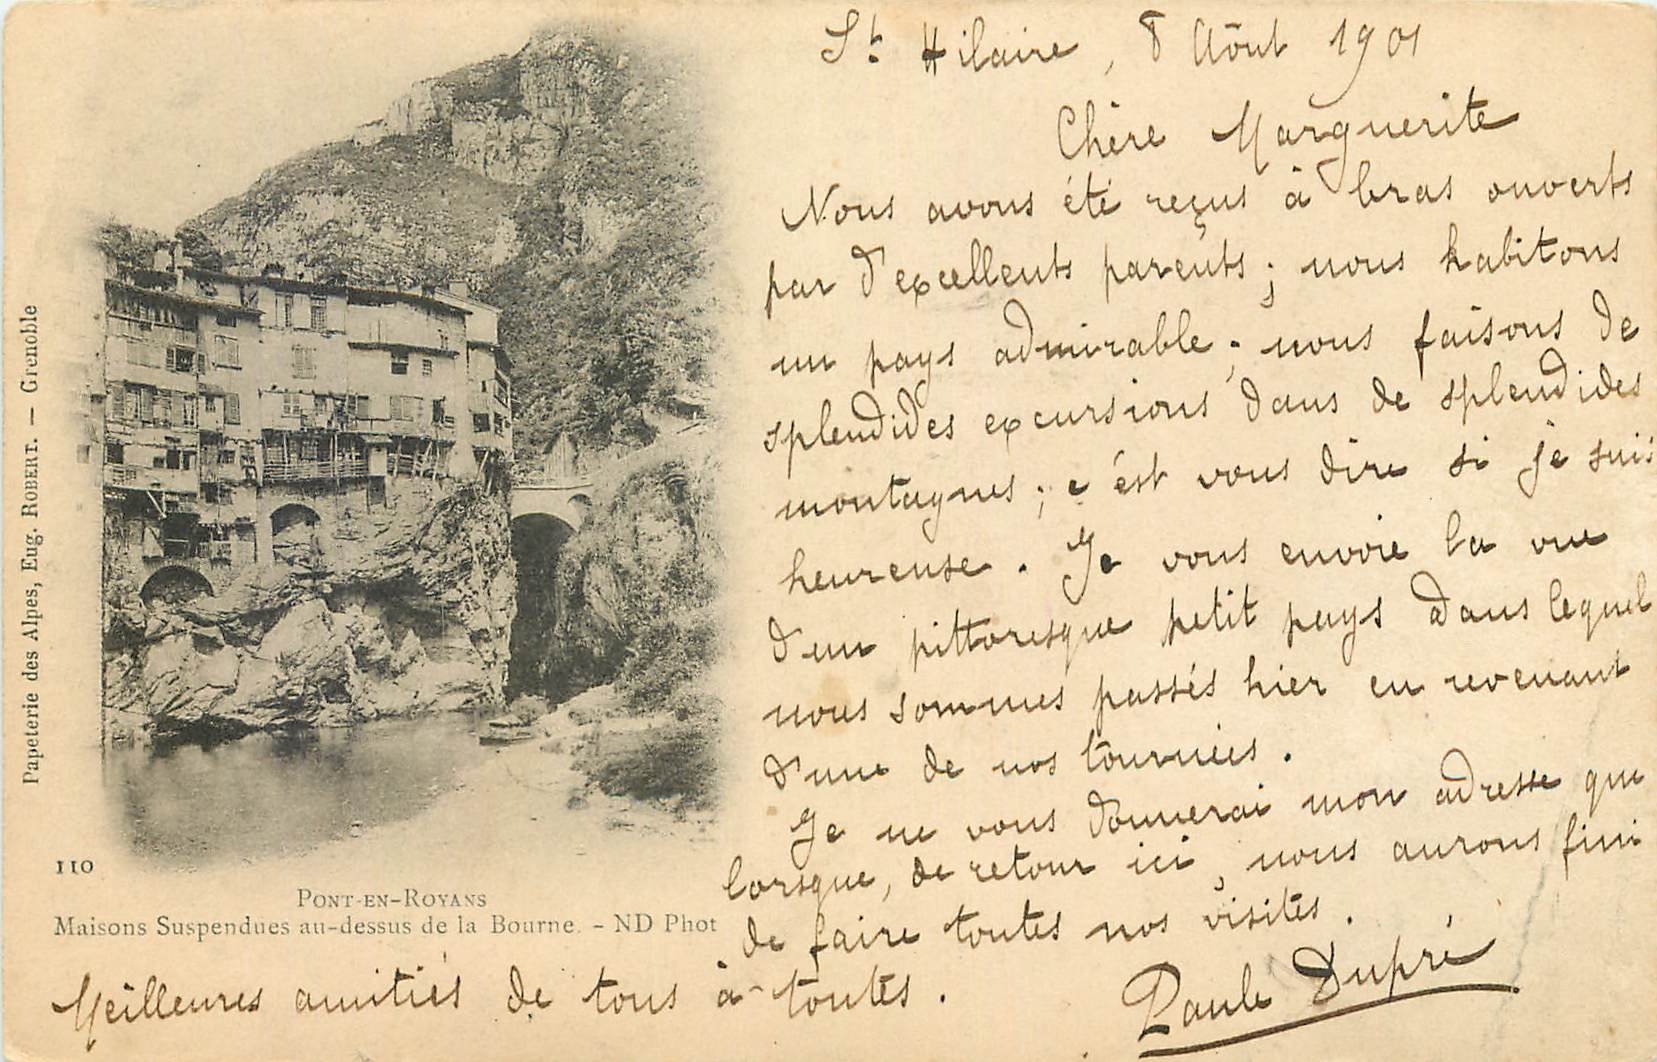 St Hilaire, 8 Aôut 1901
Chère Marguerite
Nous avons été reçus à bras ouverts
par d'excellents parents ; nous habitons
un pays admirable ; nous faisons de
splendides excursions dans de splendides
montagnes ; c'est vous dire si je suis
heureuse. Je vous envoie la vue
d'un pittoresque petit pays dans lequel
nous sommes passés hier en revenant
d'une de nos tournées.
Je ne vous donnerai mon adresse que
lorsque, de retour ici, nous aurons fini
de faire toutes nos visites.
Meilleures amitiés de tous à toutes.
Paule Dupré
Papeterie des Alpes, Eug. ROBERT. — Grenoble
110
PONT-EN-ROYANS
Maisons Suspendues au-dessus de la Bourne. - ND Phot